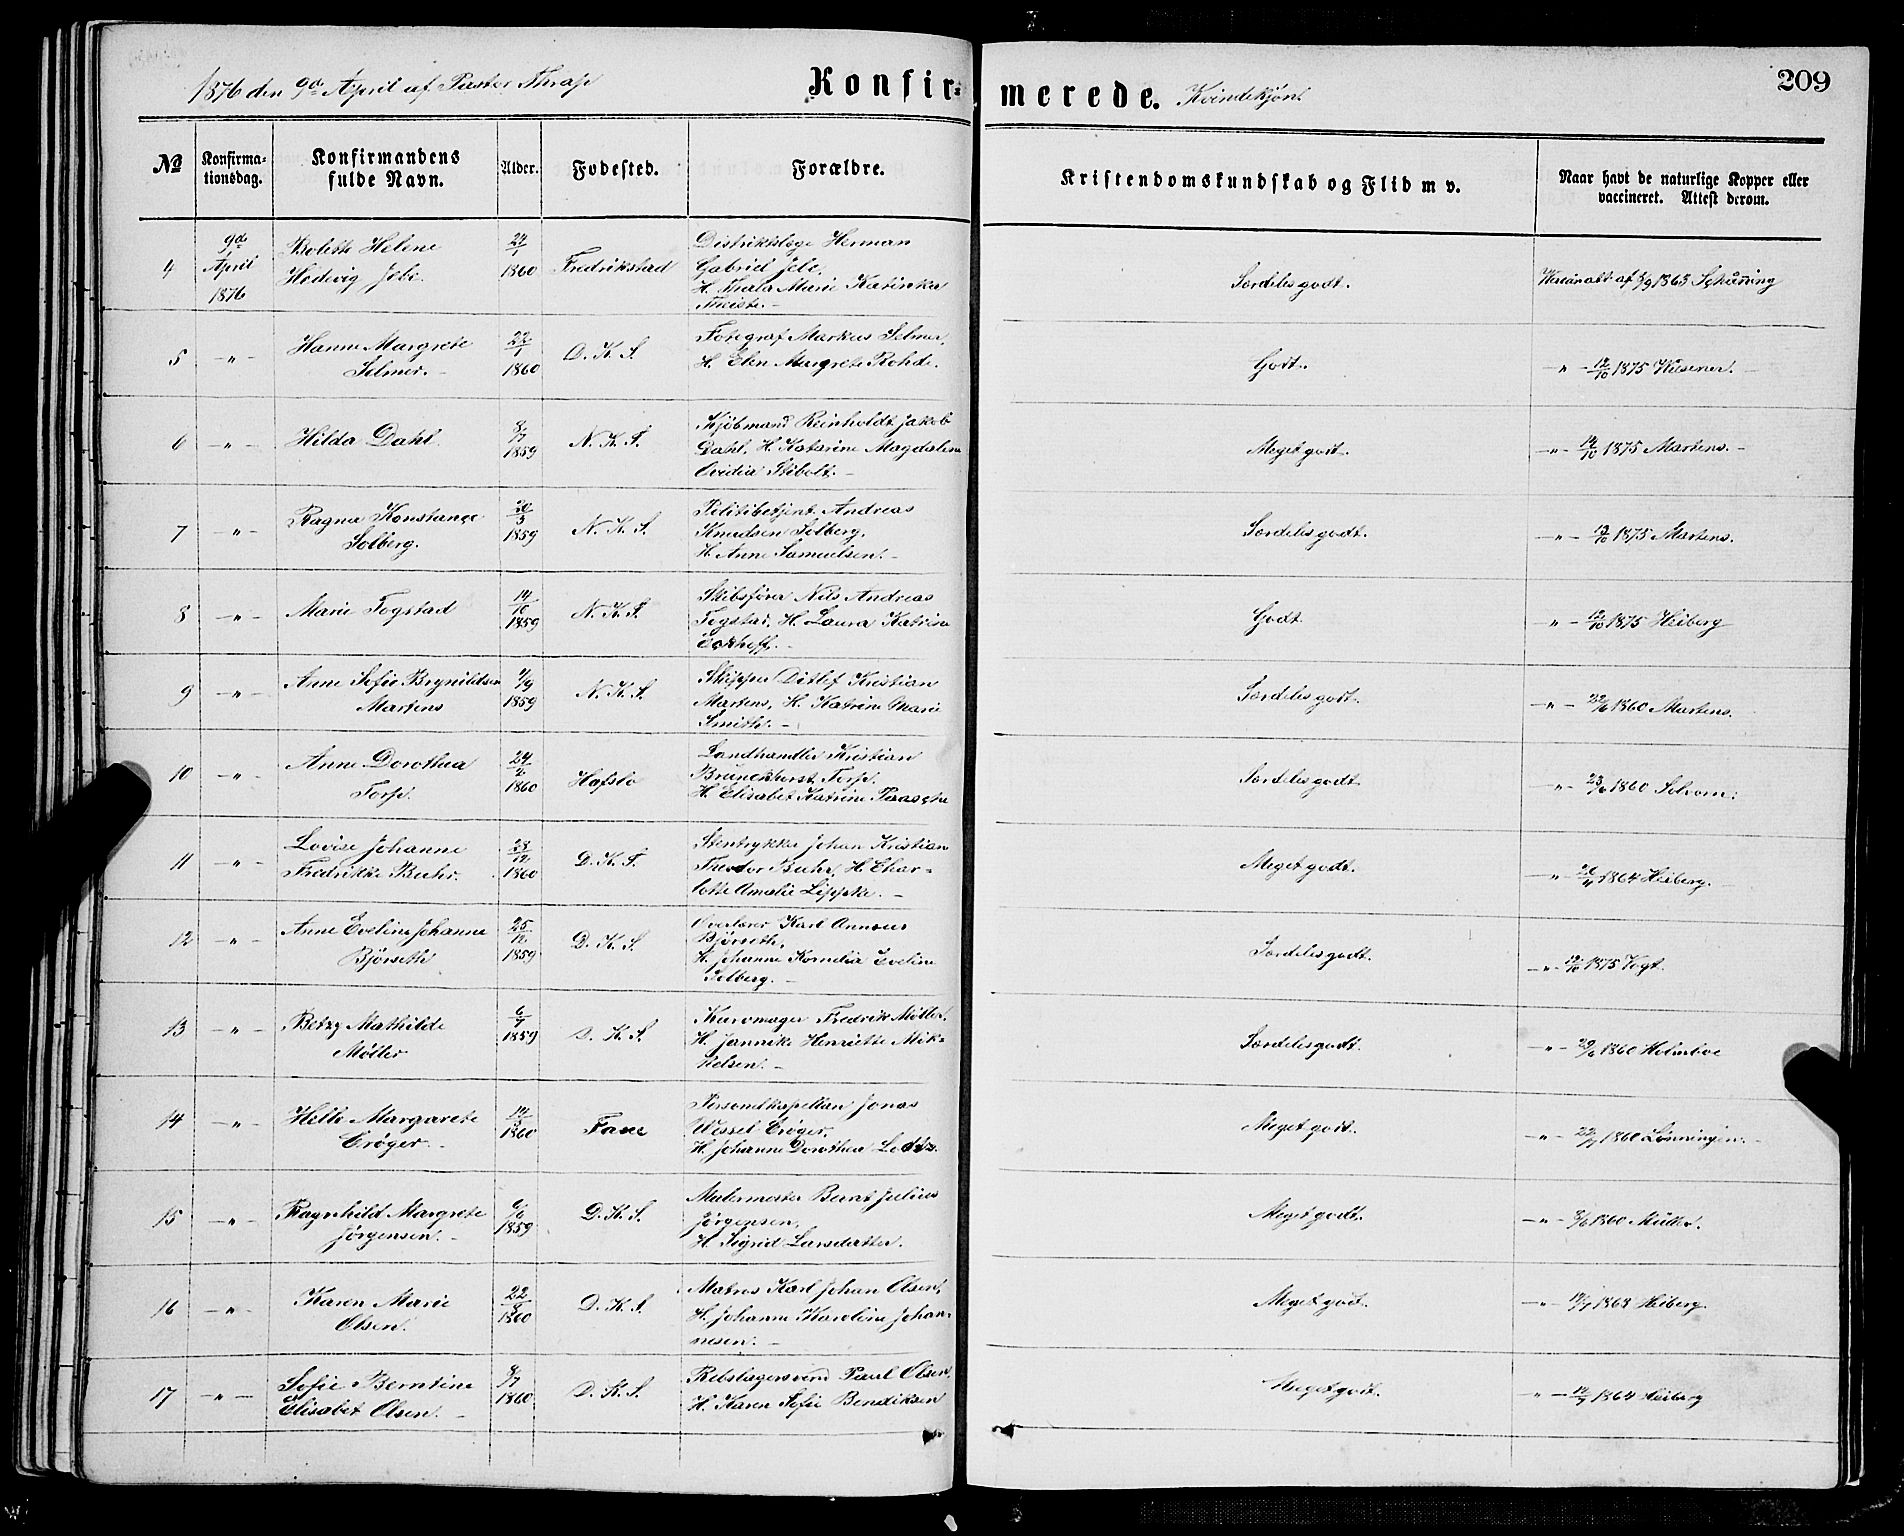 1876 den 9de April af Pastor Thrap
Konfir=
merede. Kvindekjön.
209
No
Konfirma-
tionsdag.
Konfirmandens
fulde Navn.
Alder.
Fodested.
Forældre.
Kristendomskundskab og Flid m v.
Naar havt de naturlige Kopper eller
vaccineret. Attest derom.
4
9de
April
1876
Bolette Helene
Hedvig Jebe.
1860
Fredrikstad
Distriktslæge Herman
Gabriel Jebe,
H. Marie Katinka
Særdeles godt.
1863
5
-"-
Hanne Margrete
Selmer.-
22/1
1860
D. K. S.
Fotograf Markus Selmer,
H. Elen Margrete Rohde.
Godt.
-"- 12/10 1875 Wiesener.
6
-"-
Hilda Dahl
8/7
1859
N. K. S.
Kjöbmand Reinholdt Jakob
Dahl, H. Katarine Magdalene
Ovidia Stibolt.-
Meget godt.
-"- 12/10 1875 Martens.-
7
-"-
Ragna Konstance
Solberg.
1859
N. K. S.
Politibetjent Andreas
Knudsen Solberg,
H. Anne Samuelsen.-
Særdeles godt.
-"- 12/10 1875 Martens.
8
-"-
Marie Fogstad
14/10
1859
N. K. S.
Skibsförer Nils Andreas
Fogstad, H. Laura Katrine
Eckhoff.-
Godt
-"- 12/10 1875 Heiberg
9
-"-
Anne Sofie Brynildsen
Martens
1859
N. K. S.
Skipper Ditlef Kristian
Martens, H. Katrine Marie
Smith.-
Særdeles godt.
-"- 1860 Martens.
10
-"-
Anne Dorothea
Torp.
24/2
1860
Hafslo
Landhandler Kristian
Brunckhorst Torp.
H. Elisabet Katrine Paasche
Særdeles godt
-"- 1860
11
-"-
Lovise Johanne
Fredrikke Buhr.
23/12
1860
D. K. S.
Stentrykker Johan Kristian
Theodor Buhr, H. Char=
lotte Amalie Lippke.-
Meget godt.
-"- 1864 Heiberg.
12
-"-
Anne Eveline Johanne
Björseth
25/12
1859
D. K. S.
Overlærer Karl Annæus
Björseth,
H. Johanne Kornelia Eveline
Selberg.-
Særdeles godt.
-"- 12/10 1875 Vogt.
13
-"-
Betzy Mathilde
Möller
6/7
1859
D. K. S.
Kurvmager Fredrik Möller.
H. Jannike Henriette Mik=
kelsen.-
Særdeles godt.
-"- 1860
14
-"-
Helle Margarete
Cröger.-
1860
Fane
Personelkapellan Jonas
Wessel Cröger,
H. Johanne Dorothea
Meget godt.
-"- 1860 Lönningen.-
15
-"-
Ragnhild Margrete
Jörgensen.-
1859
D. K. S.
Malermester Bernt Julius
Jörgensen,
H. Sigrid Larsdatter.
Meget godt.
-"- 1860 Müller.
16
-"-
Karen Marie
Olsen.
22/8
1860
D. K. S.
Matros Karl Johan Olsen,
H. Johanne Karoline Johan-
nesen.-
Meget godt.
-"- 1868 Heiberg.
17
-"-
Sofie Berntine
Elisabet Olsen.-
1860
D. K. S.
Rebslagersvend Paul Olsen,
H. Karen Sofie Bendiksen
Meget godt.
-"- 1864 Heiberg